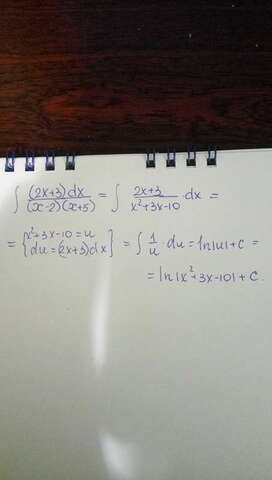 ∫ (2x+3)dx / (x-2)(x+5) = ∫ 2x+3 / x²+3x-10 · dx =
= { x²+3x-10 = u
du = (2x+3)dx } = ∫ 1/u · du = ln|u| + c =
= ln|x²+3x-10| + c.